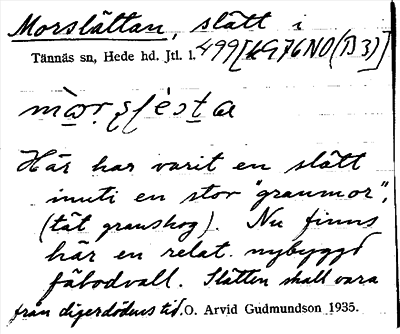 Morslättan, slått i
Tännäs sn, Hede hd. Jtl. l. 499 [4G76NO(B3)]
Här har varit en slått
inuti en stor "granmor",
(tät granskog). Nu finns
här en relat. nybyggd
fäbodvall. Slåtten skall vara
från digerdödens tid. O. Arvid Gudmundson 1935.